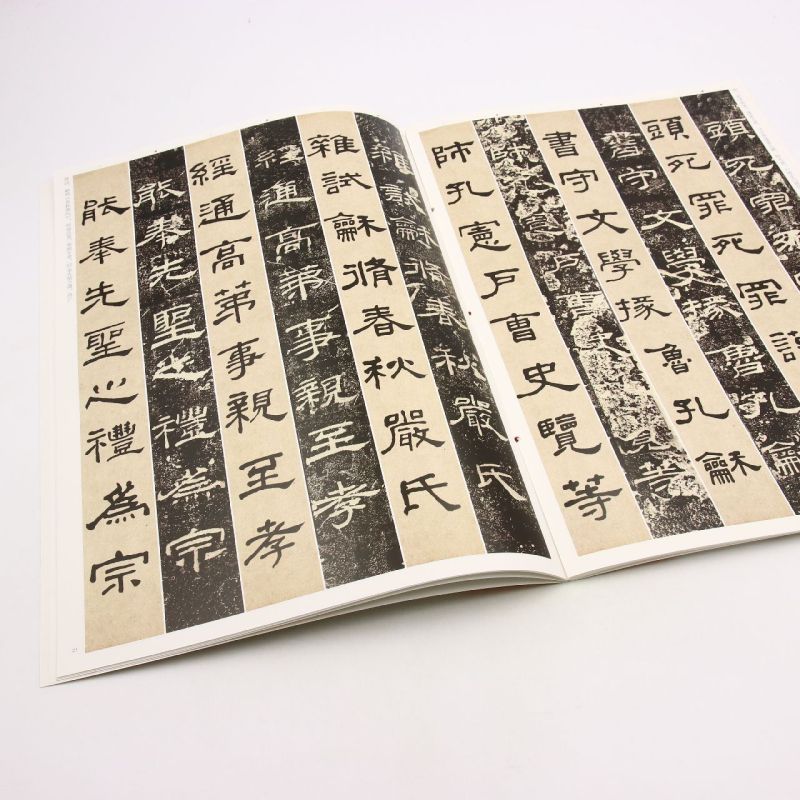 頭死罪
頭死罪死罪謹
書守文學掾魯孔龢
書守文學掾魯孔龢
師孔憲戶曹史覽等
師孔憲戶曹史覽等
雜試龢脩春秋嚴氏
雜試龢脩春秋嚴氏
經通高苐事親至孝
經通高苐事親至孝
能奉先聖之禮爲宗
能奉先聖之禮爲宗
21